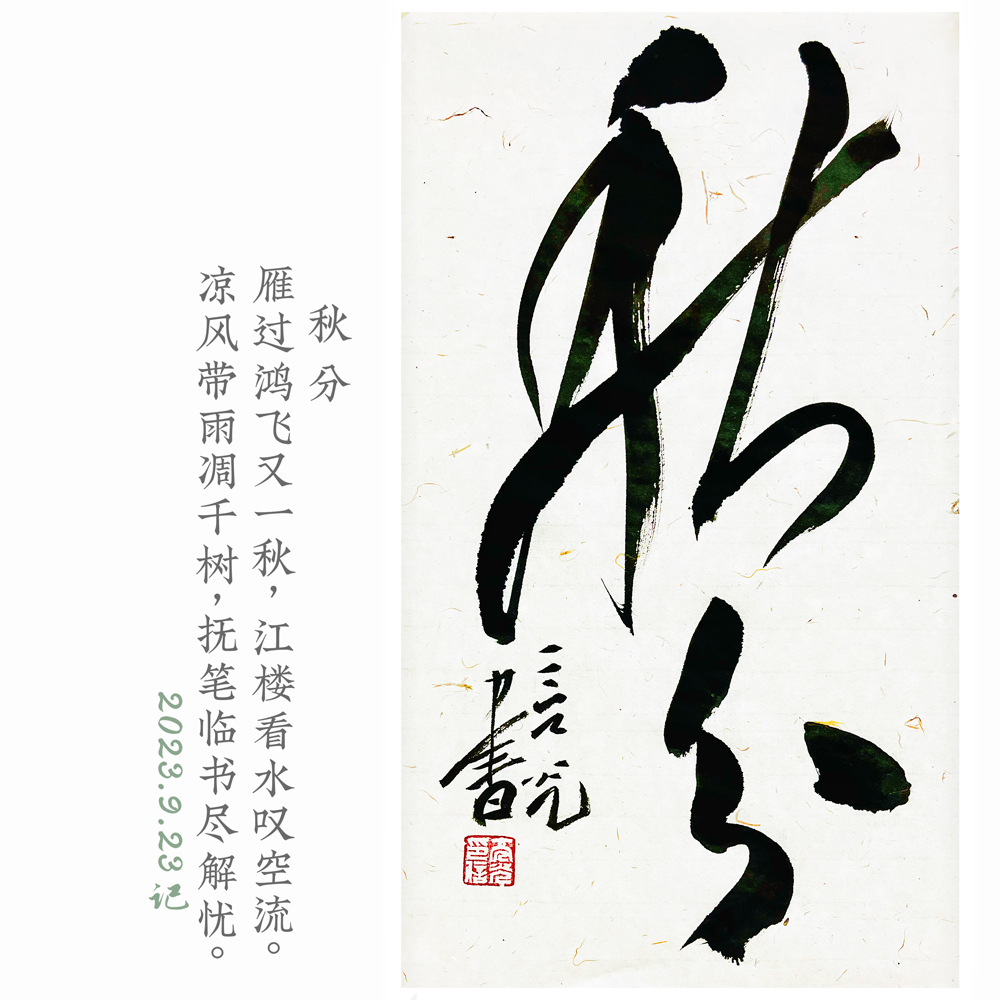 秋分
言光
书
秋分
雁过鸿飞又一秋，江楼看水叹空流。
凉风带雨凋千树，抚笔临书尽解忧。
2023.9.23记